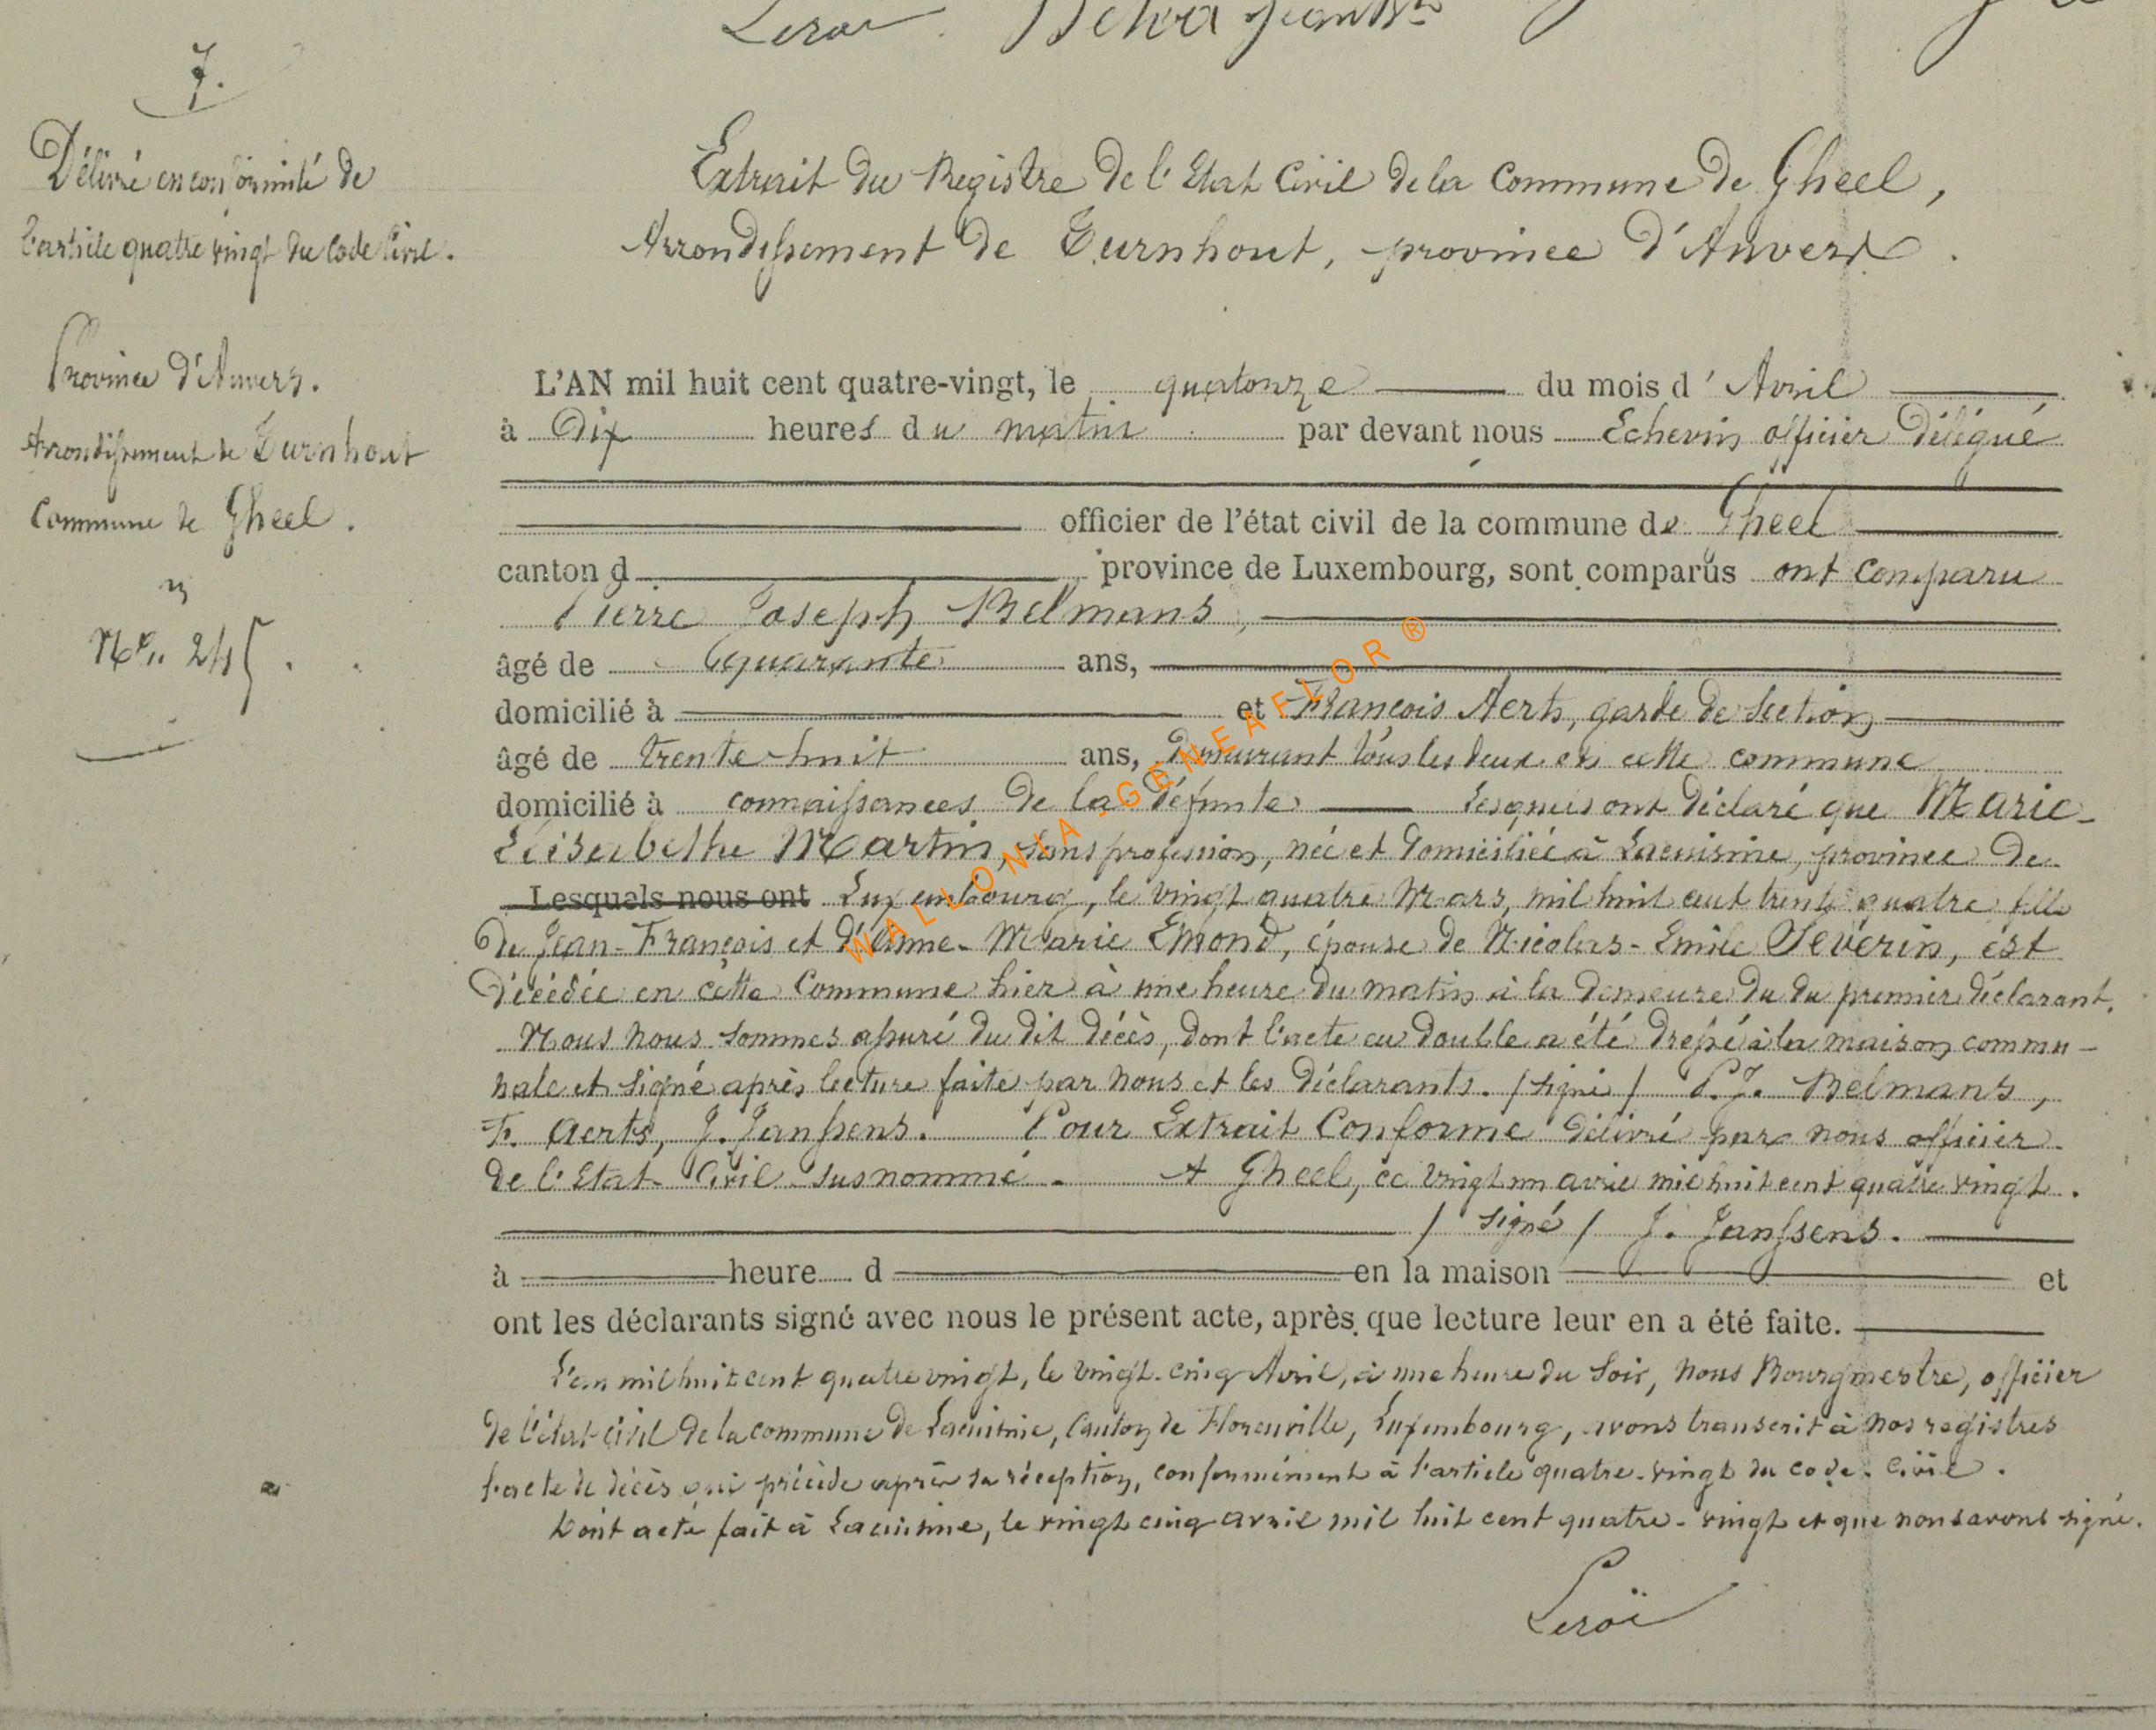 Leroi
7.
Délivré en conformité de
l'article quatre vingt du Code Civil.
Province d'Anvers.
Arrondissement de Turnhout
Commune de Gheel.
No 245.
Extrait du Registre de l'Etat Civil de la Commune de Gheel,
Arrondissement de Turnhout, province d'Anvers.
L'AN mil huit cent quatre-vingt, le quatorze du mois d'Avril
à Dix heures du matin par devant nous Echevin officier Délégué
officier de l'état civil de la commune de Gheel
canton d province de Luxembourg, sont comparus ont comparu
Pierre Joseph Belmans,
âgé de quarante ans,
domicilié à et François Aerts, garde de Section
âgé de trente-huit ans, Demeurant tous les deux en cette commune
domicilié à connaissances de la défunte lesquels ont déclaré que Marie-
Elisabethe Martin, sans profession, née et domiciliée à Lacuisine, province de
Lesquels nous ont Luxembourg, le vingt quatre Mars, mil huit cent trente quatre fille
de Jean-François et d'Anne-Marie Emond, épouse de Nicolas-Emile Séverin, est
décédée en cette Commune hier à une heure du matin à la demeure du du premier déclarant.
Nous nous sommes assuré du dit décès, dont l'acte en double a été dressé à la maison commu-
nale et signé après lecture faite par nous et les déclarants. /signé/ P.J. Belmans,
F. Aerts, J. Janssens. Pour Extrait Conforme délivré par nous officier
de l'Etat-Civil susnommé. A Gheel, ce vingt un avril mil huit cent quatre vingt.
/signé/ J. Janssens.
à heure d en la maison et
ont les déclarants signé avec nous le présent acte, après que lecture leur en a été faite.
L'an mil huit cent quatre vingt, le vingt-cinq Avril, à une heure du soir, nous Bourgmestre, officier
de l'état civil de la commune de Lacuisine, Canton de Florenville, Luxembourg, avons transcrit à nos registres
l'acte de décès qui précède après sa réception, conformément à l'article quatre-vingt du code civil.
Dont acte fait à Lacuisine, le vingt cinq avril mil huit cent quatre-vingt et que nous avons signé.
Leroi
WALLONIA-GENEAFLOR ®